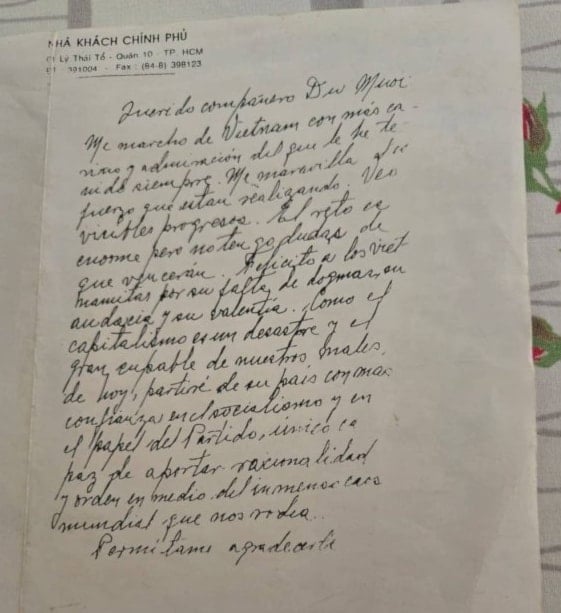 NHÀ KHÁCH CHÍNH PHỦ
Lý Thái Tổ - Quân 10 - TP. HCM
391004 - Fax: (84-8) 398123
Querido compañero Du Muoi
Me marcho de Vietnam con más ca-
riño y admiración del que le he te-
nido siempre. Me maravilla el es
fuerzo que están realizando. Veo
visibles progresos. El reto es
enorme pero no tengo dudas de
que vencerán. Felicito a los viet
namitas por su falta de dogmas, su
audacia y su valentía. Como el
capitalismo es un desastre y el
gran culpable de nuestros males
de hoy, partiré de su país con más
confianza en el socialismo y en
el papel del Partido, único ca
paz de aportar racionalidad
y orden en medio del inmenso caos
mundial que nos rodea.
Permítame agradecerle